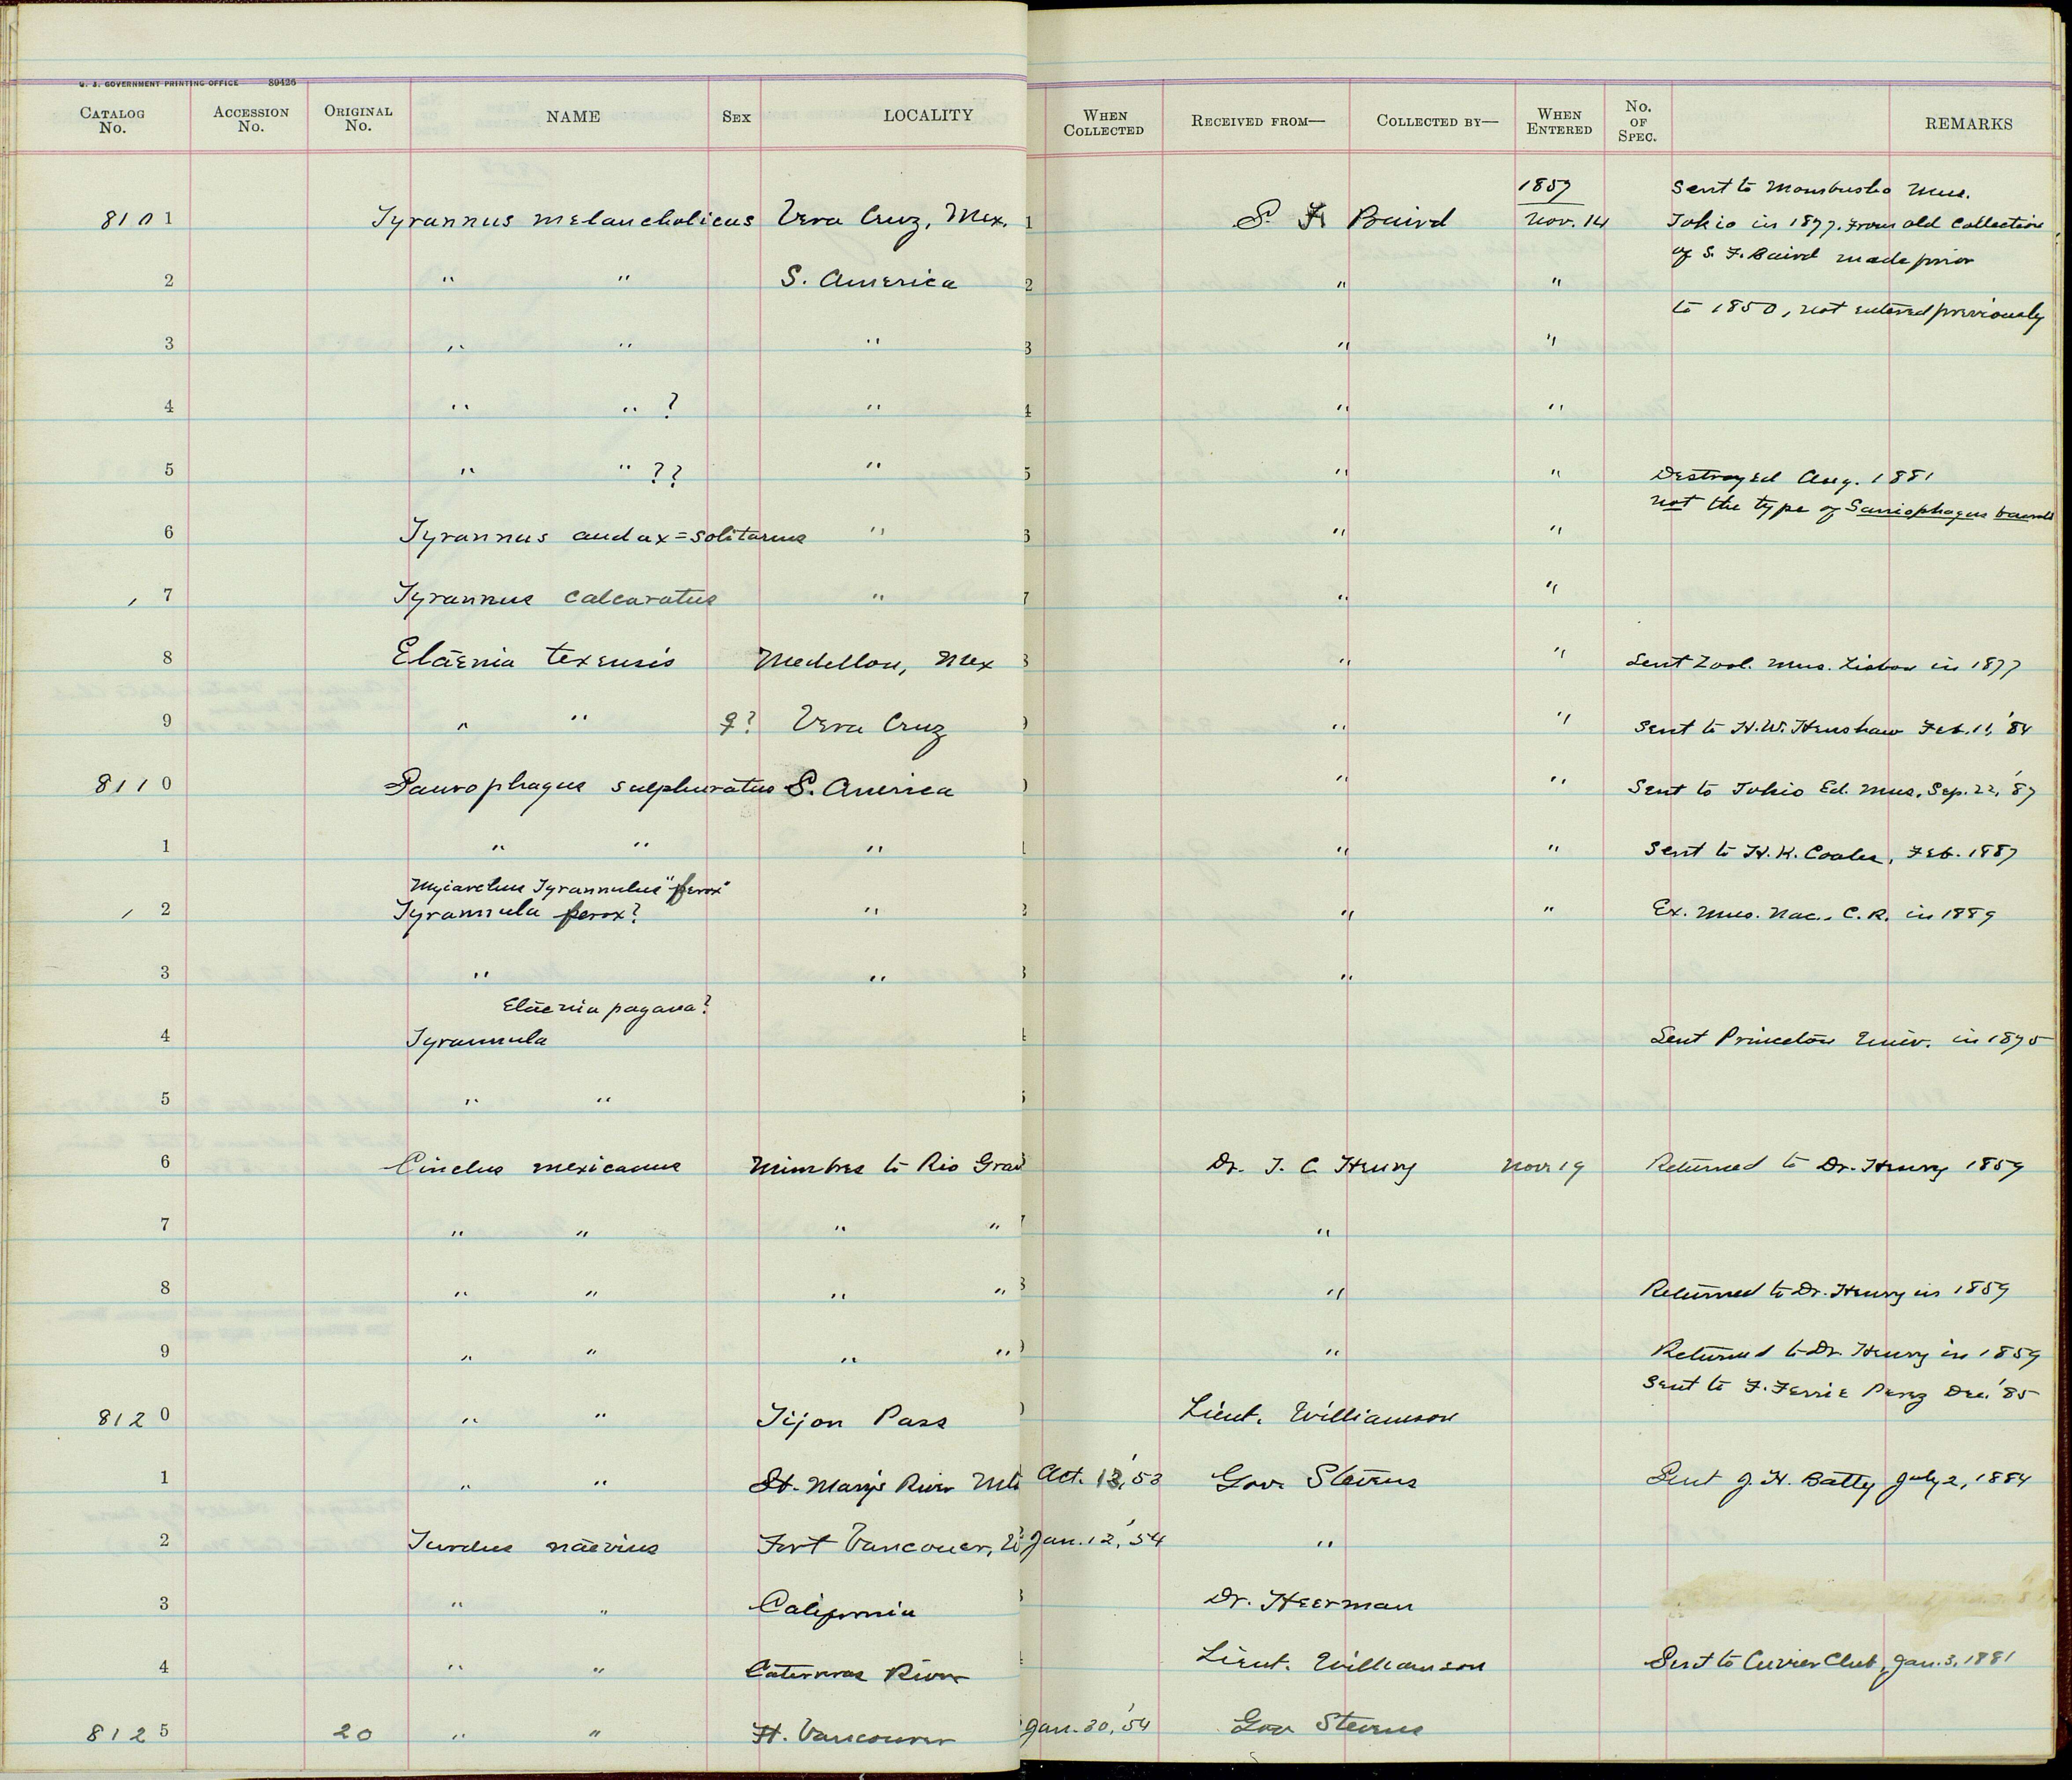 U. S. GOVERNMENT PRINTING OFFICE 89426
CATALOG No. ACCESSION No. ORIGINAL No. NAME SEX LOCALITY WHEN COLLECTED RECEIVED FROM— COLLECTED BY— WHEN ENTERED No. OF SPEC. REMARKS
1857 Sent to Mombusho Mus.
8101 Tyrannus melancholicus Vera Cruz, Mex. 1 S. F. Baird Nov. 14 Tokio in 1877. From old Collection
of S. F. Baird made prior
2 " " S. America 2 " "
to 1850, not entered previously
3 " " " 3 " "
4 " " ? " 4 " "
5 " " ?? " 5 " " Destroyed Aug. 1881
not the type of
6 Tyrannus audax = solitarius " 6 " "
7 Tyrannus calcaratus " 7 " "
8 Elaenia texensis Medellon, Mex 8 " " Sent Zool. Mus. Lisbon in 1877
9 " " ♀? Vera Cruz 9 " " Sent to H. W. Henshaw Feb. 11, '84
8110 Saurophagus sulphuratus S. America 0 " " Sent to Tokio Ed. Mus. Sep. 22, '87
1 " " " 1 " " Sent to H. K. Coale, Feb. 1887
Myiarchus Tyrannulus "ferox"
2 Tyrannula ferox? " 2 " " Ex. Mus. Nac. C. R. in 1889
3 " " 3 "
Elaenia pagana?
4 Tyrannula 4 Sent Princeton Univ. in 1875
5 " " 5
6 Cinclus mexicanus Mimbres to Rio Gran Dr. T. C. Henry Nov 19 Returned to Dr. Henry 1859
7 " " " " 7 "
8 " " " " 8 " Returned to Dr. Henry in 1859
9 " " " " 9 " Returned to Dr. Henry in 1859
Sent to F. Perez Dec. '85
8120 " " Tijon Pass 0 Lieut. Williamson
1 " " St. Mary's River Mts Oct. 13, '53 Gov. Stevens Sent J. H. Batty July 2, 1884
2 Turdus naevius Fort Vancouver, Jan. 12, '54 "
3 " " California 3 Dr. Heerman
4 " " River Lieut. Williamson Sent to Cuvier Club, Jan. 3, 1881
8125 20 " " Ft. Vancouver Jan. 30, '54 Gov Stevens